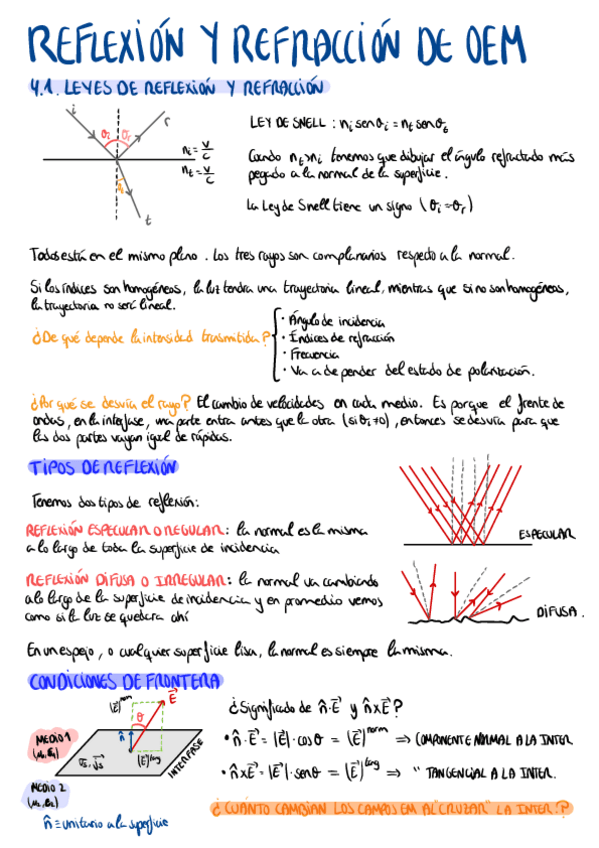 REFLEXIÓN Y REFRACCIÓN DE OEM
4.1. LEYES DE REFLEXIÓN Y REFRACCIÓN
i
θi
θr
r
ni = v/c
nt = v/c
θt
t
LEY DE SNELL : ni sen θi = nt sen θt
Cuando nt>ni tenemos que dibujar el ángulo refractado más
pegado a la normal de la superficie.
La Ley de Snell tiene un signo (θi=-θr)
Todos está en el mismo plano. Los tres rayos son complanarios respecto a la normal.
Si los índices son homogéneos, la luz tendra una trayectoria lineal, mientras que si no son homogéneos,
la trayectoria no será lineal.
¿De qué depende la intensidad transmitida?
· Ángulo de incidencia
· Índices de refracción
· Frecuencia
· Va a depender del estado de polarización.
¿Por qué se desvía el rayo? El cambio de velocidades en cada medio. Es porque el frente de
ondas, en la interfase, una parte entra antes que la otra (si θi≠0), entonces se desvía para que
las dos partes vayan igual de rápidas.
TIPOS DE REFLEXIÓN
Tenemos dos tipos de reflexión:
REFLEXIÓN ESPECULAR O REGULAR: la normal es la misma
a lo largo de toda la superficie de incidencia
ESPECULAR
REFLEXIÓN DIFUSA O IRREGULAR: la normal va cambiando
a lo largo de la superficie de incidencia y en promedio vemos
como si la luz se quedara ahí
DIFUSA.
En un espejo, o cualquier superficie lisa, la normal es siempre la misma.
CONDICIONES DE FRONTERA
|E⃗|norm
E⃗
θ
n̂
MEDIO 1
(μ1, ε1)
σs, J⃗s
|E⃗|tang
INTERFASE
MEDIO 2
(μ2, ε2)
n̂ ≡ unitario a la superficie
¿Significado de n̂·E⃗ y n̂xE⃗?
• n̂·E⃗ = |E⃗|·cosθ = |E⃗|norm ⇒ COMPONENTE NORMAL A LA INTER.
• n̂xE⃗ = |E⃗|·senθ = |E⃗|tang ⇒ " TANGENCIAL A LA INTER.
¿CUÁNTO CAMBIAN LOS CAMPOS EM AL "CRUZAR" LA INTER.?